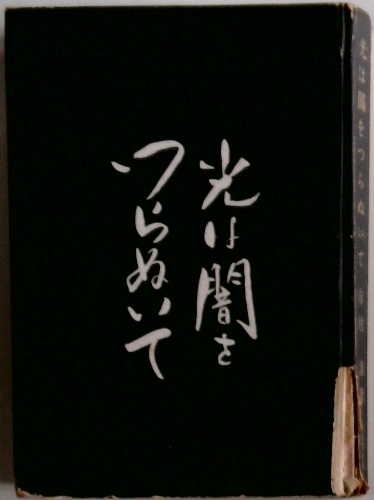 光は闇を
つらぬいて
光は闇をつらぬいて